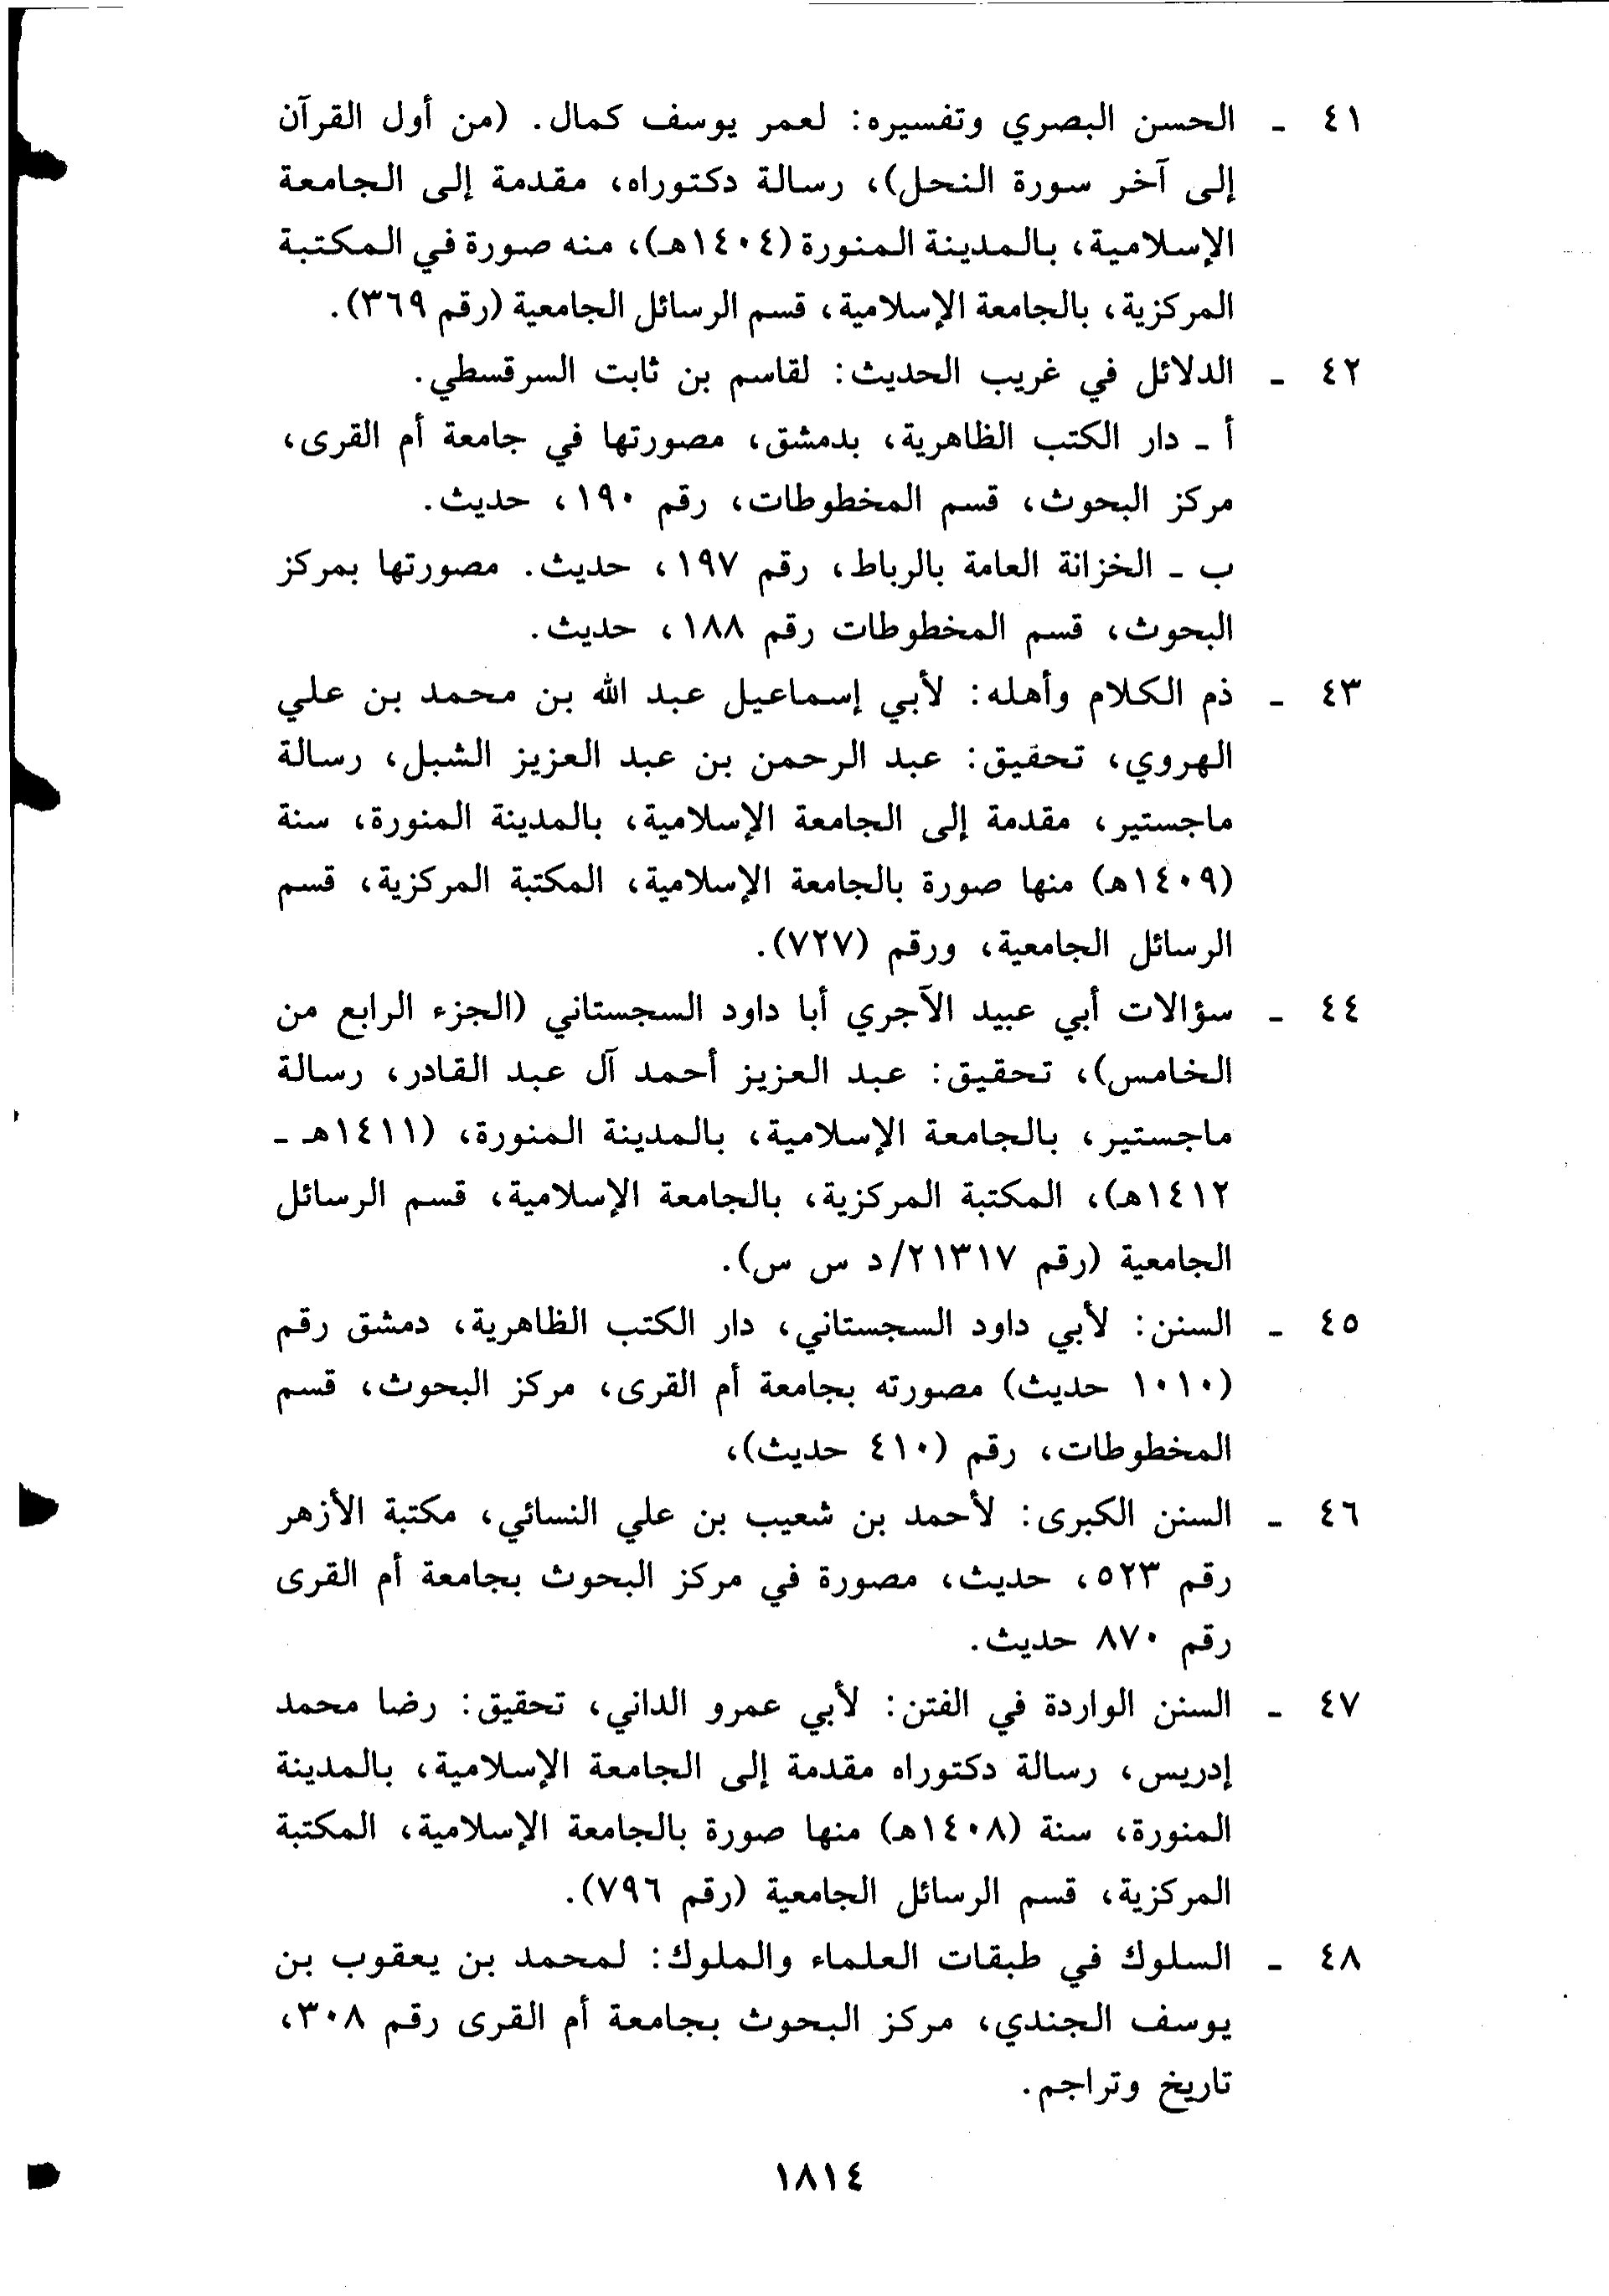 ٤١ - الحسن البصري وتفسيره: لعمر يوسف كمال. (من أول القرآن
إلى آخر سورة النحل)، رسالة دكتوراه، مقدمة إلى الجامعة
الإسلامية، بالمدينة المنورة (١٤٠٤هـ)، منه صورة في المكتبة
المركزية، بالجامعة الإسلامية، قسم الرسائل الجامعية (رقم ٣٦٩).
٤٢ - الدلائل في غريب الحديث: لقاسم بن ثابت السرقسطي.
أ - دار الكتب الظاهرية، بدمشق، مصورتها في جامعة أم القرى،
مركز البحوث، قسم المخطوطات، رقم ١٩٠، حديث.
ب - الخزانة العامة بالرباط، رقم ١٩٧، حديث. مصورتها بمركز
البحوث، قسم المخطوطات رقم ١٨٨، حديث.
٤٣ - ذم الكلام وأهله: لأبي إسماعيل عبد الله بن محمد بن علي
الهروي، تحقيق: عبد الرحمن بن عبد العزيز الشبل، رسالة
ماجستير، مقدمة إلى الجامعة الإسلامية، بالمدينة المنورة، سنة
(١٤٠٩هـ) منها صورة بالجامعة الإسلامية، المكتبة المركزية، قسم
الرسائل الجامعية، ورقم (٧٢٧).
٤٤ - سؤالات أبي عبيد الآجري أبا داود السجستاني (الجزء الرابع من
الخامس)، تحقيق: عبد العزيز أحمد آل عبد القادر، رسالة
ماجستير، بالجامعة الإسلامية، بالمدينة المنورة، (١٤١١هـ -
١٤١٢هـ)، المكتبة المركزية، بالجامعة الإسلامية، قسم الرسائل
الجامعية (رقم ٢١٣١٧/د س س).
٤٥ - السنن: لأبي داود السجستاني، دار الكتب الظاهرية، دمشق رقم
(١٠١٠ حديث) مصورته بجامعة أم القرى، مركز البحوث، قسم
المخطوطات، رقم (٤١٠ حديث)،
٤٦ - السنن الكبرى: لأحمد بن شعيب بن علي النسائي، مكتبة الأزهر
رقم ٥٢٣، حديث، مصورة في مركز البحوث بجامعة أم القرى
رقم ٨٧٠ حديث.
٤٧ - السنن الواردة في الفتن: لأبي عمرو الداني، تحقيق: رضا محمد
إدريس، رسالة دكتوراه مقدمة إلى الجامعة الإسلامية، بالمدينة
المنورة، سنة (١٤٠٨هـ) منها صورة بالجامعة الإسلامية، المكتبة
المركزية، قسم الرسائل الجامعية (رقم ٧٩٦).
٤٨ - السلوك في طبقات العلماء والملوك: لمحمد بن يعقوب بن
يوسف الجندي، مركز البحوث بجامعة أم القرى رقم ٣٠٨،
تاريخ وتراجم.
١٨١٤